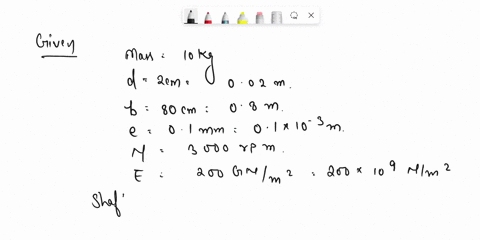 Given
Mass = 10 kg
d = 2cm = 0.02 m.
b = 80 cm = 0.8 m.
e = 0.1 mm = 0.1 * 10^-3 m.
N = 3000 rpm.
E = 200 GN/m^2 = 200 * 10^9 N/m^2
Shaf